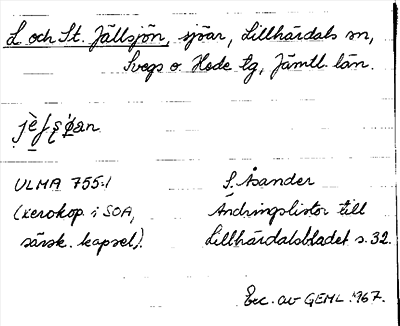 L och St. Jällsjön, sjöar, Lillhärdals sn,
Svegs o. Hede tg, Jämtl. län.
ULMA 755:1
S. Åsander
(xerokop. i SOA,
Ändringslistor till
särsk. kapsel).
Lillhärdalsbladet s. 32.
Exc. av GEHL 1967.